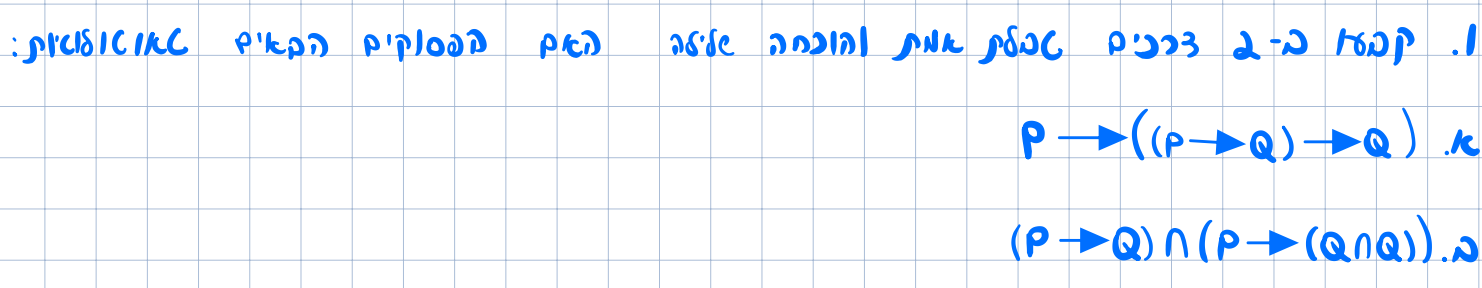 1. קבעו ב-2 דרכים טבלת אמת והוכחה שלילה האם הפסוקים הבאים טאוטולוגיות:
א. P → ((P → Q) → Q)
ב. (P → Q) ∩ (P → (Q ∩ Q))